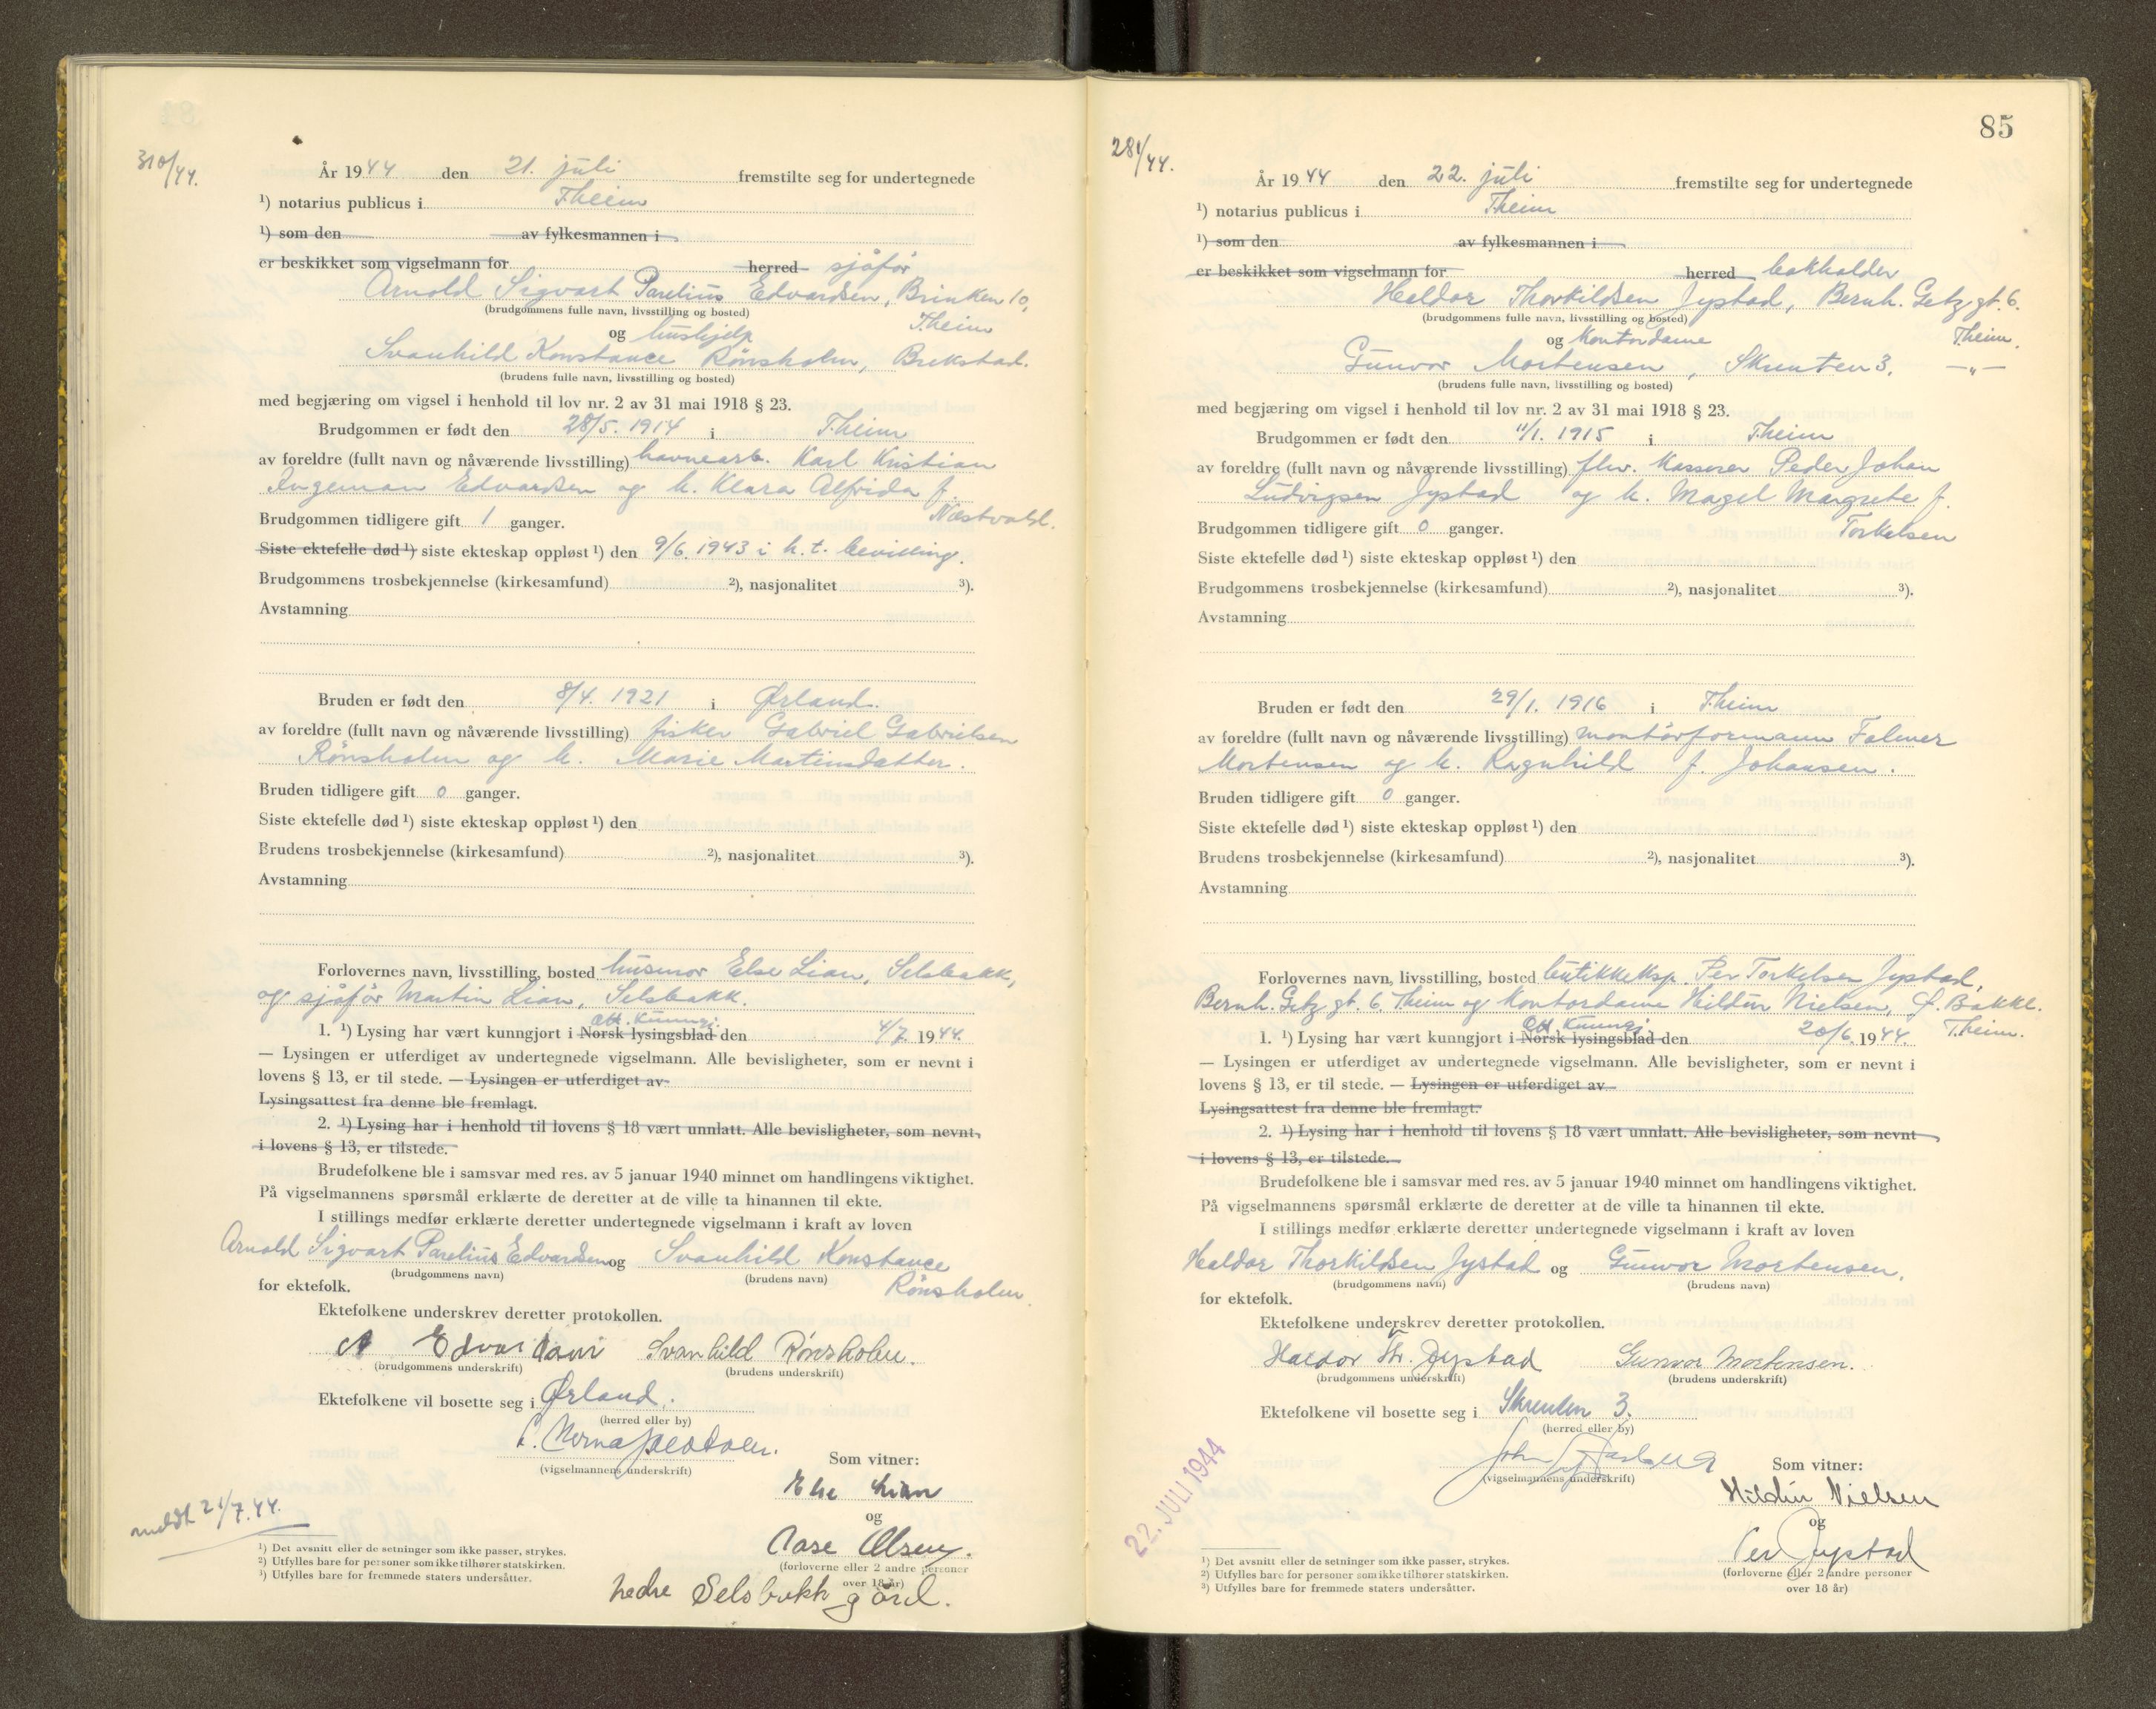 310/44.
År 1944 den 21. juli fremstilte seg for undertegnede
¹) notarius publicus i T.heim
¹) som den av fylkesmannen i
er beskikket som vigselmann for herred sjåfør
Arnold Sigvart Parelius Edvardsen, Brinken 10,
(brudgommens fulle navn, livsstilling og bosted)
T.heim
og hushjelp
Svanhild Konstance Rönsholm, Brekstad.
(brudens fulle navn, livsstilling og bosted)
med begjæring om vigsel i henhold til lov nr. 2 av 31 mai 1918 § 23.
Brudgommen er født den 28/5. 1914 i T.heim
av foreldre (fullt navn og nåværende livsstilling) havnearb. Karl Kristian
Ingeman Edvardsen og h. Klara Alfrida f.
Næstvold.
Brudgommen tidligere gift 1 ganger.
Siste ektefelle død ¹) siste ekteskap oppløst ¹) den 9/6. 1943 i h. t. bevilling.
Brudgommens trosbekjennelse (kirkesamfund) ²), nasjonalitet ³).
Avstamning
Bruden er født den 8/4. 1921 i Ørland.
av foreldre (fullt navn og nåværende livsstilling) fisker Gabriel Gabrielsen
Rönsholm og h. Marie Martinsdatter.
Bruden tidligere gift 0 ganger.
Siste ektefelle død ¹) siste ekteskap oppløst ¹) den
Brudens trosbekjennelse (kirkesamfund) ²), nasjonalitet ³).
Avstamning
Forlovernes navn, livsstilling, bosted husmor Else Lian, Selsbakk,
og sjåfør Martin Lian, Selsbakk.
Off. Kunngj.
1. ¹) Lysing har vært kunngjort i Norsk lysingsblad den 4/7. 1944.
— Lysingen er utferdiget av undertegnede vigselmann. Alle bevisligheter, som er nevnt i
lovens § 13, er til stede. — Lysingen er utferdiget av
Lysingsattest fra denne ble fremlagt.
2. ¹) Lysing har i henhold til lovens § 18 vært unnlatt. Alle bevisligheter, som nevnt
i lovens § 13, er tilstede.
Brudefolkene ble i samsvar med res. av 5 januar 1940 minnet om handlingens viktighet.
På vigselmannens spørsmål erklærte de deretter at de ville ta hinannen til ekte.
I stillings medfør erklærte deretter undertegnede vigselmann i kraft av loven
Arnold Sigvart Parelius Edvardsen og Svanhild Konstance
(brudgommens navn) (brudens navn)
Rönsholm.
for ektefolk.
Ektefolkene underskrev deretter protokollen.
A Edvardsen Svanhild Rønsholm.
(brudgommens underskrift) (brudens underskrift)
Ektefolkene vil bosette seg i Ørland.
(herred eller by)
(vigselmannens underskrift)
Som vitner:
Else Lian
og
Aase Olsen.
(forloverne eller 2 andre personer
over 18 år)
nedre Selsbakk gård.
meldt 21/7. 44.
¹) Det avsnitt eller de setninger som ikke passer, strykes.
²) Utfylles bare for personer som ikke tilhører statskirken.
³) Utfylles bare for fremmede staters undersåtter.
85
281/44.
År 1944 den 22. juli fremstilte seg for undertegnede
¹) notarius publicus i T.heim
¹) som den av fylkesmannen i
er beskikket som vigselmann for herred bokholder
Haldor Thorkildsen Jystad, Bernh. Getz gt. 6.
(brudgommens fulle navn, livsstilling og bosted)
T.heim.
og Kontordame
Gunvor Mortensen, Skrenten 3. —"—
(brudens fulle navn, livsstilling og bosted)
med begjæring om vigsel i henhold til lov nr. 2 av 31 mai 1918 § 23.
Brudgommen er født den 11/1. 1915 i T.heim
av foreldre (fullt navn og nåværende livsstilling) fhv. kasserer Peder Johan
Ludvigsen Jystad og h. Magel Margrete f.
Torkelsen
Brudgommen tidligere gift 0 ganger.
Siste ektefelle død ¹) siste ekteskap oppløst ¹) den
Brudgommens trosbekjennelse (kirkesamfund) ²), nasjonalitet ³).
Avstamning
Bruden er født den 29/1. 1916 i T.heim
av foreldre (fullt navn og nåværende livsstilling) montørformann Falmer
Mortensen og h. Ragnhild f. Johansen.
Bruden tidligere gift 0 ganger.
Siste ektefelle død ¹) siste ekteskap oppløst ¹) den
Brudens trosbekjennelse (kirkesamfund) ²), nasjonalitet ³).
Avstamning
Forlovernes navn, livsstilling, bosted butikkeksp. Per Torkelsen Jystad,
Bernh. Getz gt. 6 T.heim og Kontordame Hildur Nielsen, Ø. Bakkl.
T.heim.
Off. Kunngj.
1. ¹) Lysing har vært kunngjort i Norsk lysingsblad den 20/6. 1944.
— Lysingen er utferdiget av undertegnede vigselmann. Alle bevisligheter, som er nevnt i
lovens § 13, er til stede. — Lysingen er utferdiget av
Lysingsattest fra denne ble fremlagt.
2. ¹) Lysing har i henhold til lovens § 18 vært unnlatt. Alle bevisligheter, som nevnt
i lovens § 13, er tilstede.
Brudefolkene ble i samsvar med res. av 5 januar 1940 minnet om handlingens viktighet.
På vigselmannens spørsmål erklærte de deretter at de ville ta hinannen til ekte.
I stillings medfør erklærte deretter undertegnede vigselmann i kraft av loven
Haldor Thorkildsen Jystad og Gunvor Mortensen.
(brudgommens navn) (brudens navn)
for ektefolk.
Ektefolkene underskrev deretter protokollen.
Haldor Th. Jystad Gunvor Mortensen.
(brudgommens underskrift) (brudens underskrift)
Ektefolkene vil bosette seg i Skrenten 3.
(herred eller by)
John
(vigselmannens underskrift)
Som vitner:
Hildur Nielsen
og
Per Jystad
(forloverne eller 2 andre personer
over 18 år)
22. JULI 1944
¹) Det avsnitt eller de setninger som ikke passer, strykes.
²) Utfylles bare for personer som ikke tilhører statskirken.
³) Utfylles bare for fremmede staters undersåtter.